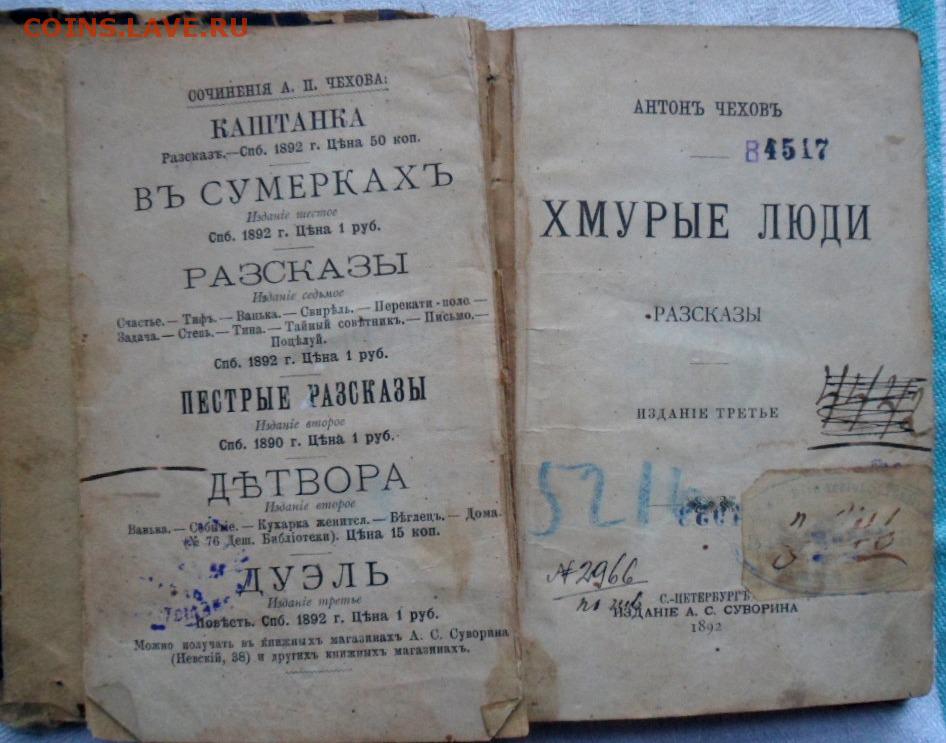 COINS.LAVE.RU
СОЧИНЕНІЯ А. П. ЧЕХОВА:
КАШТАНКА
Разсказъ.—Спб. 1892 г. Цѣна 50 коп.
ВЪ СУМЕРКАХЪ
Изданіе шестое
Спб. 1892 г. Цѣна 1 руб.
РАЗСКАЗЫ
Изданіе седьмое
Счастье.— Тифъ.— Ванька.— Свирѣль.— Перекати-поле.—
Задача.— Степь.— Тина.— Тайный совѣтникъ.— Письмо.—
Поцѣлуй.
Спб. 1892 г. Цѣна 1 руб.
ПЕСТРЫЕ РАЗСКАЗЫ
Изданіе второе
Спб. 1890 г. Цѣна 1 руб.
ДѢТВОРА
Изданіе второе
Ванька.— Событіе.— Кухарка женится.— Бѣглецъ.— Дома.
(№ 76 Деш. Библіотеки). Цѣна 15 коп.
ДУЭЛЬ
Изданіе третье
Повѣсть. Спб. 1892 г. Цѣна 1 руб.
Можно получать въ книжныхъ магазинахъ А. С. Суворина
(Невскій, 38) и другихъ книжныхъ магазинахъ.
АНТОНЪ ЧЕХОВЪ
84517
ХМУРЫЕ ЛЮДИ
РАЗСКАЗЫ
ИЗДАНІЕ ТРЕТЬЕ
№ 2966
С.-ПЕТЕРБУРГЪ
ИЗДАНІЕ А. С. СУВОРИНА
1892